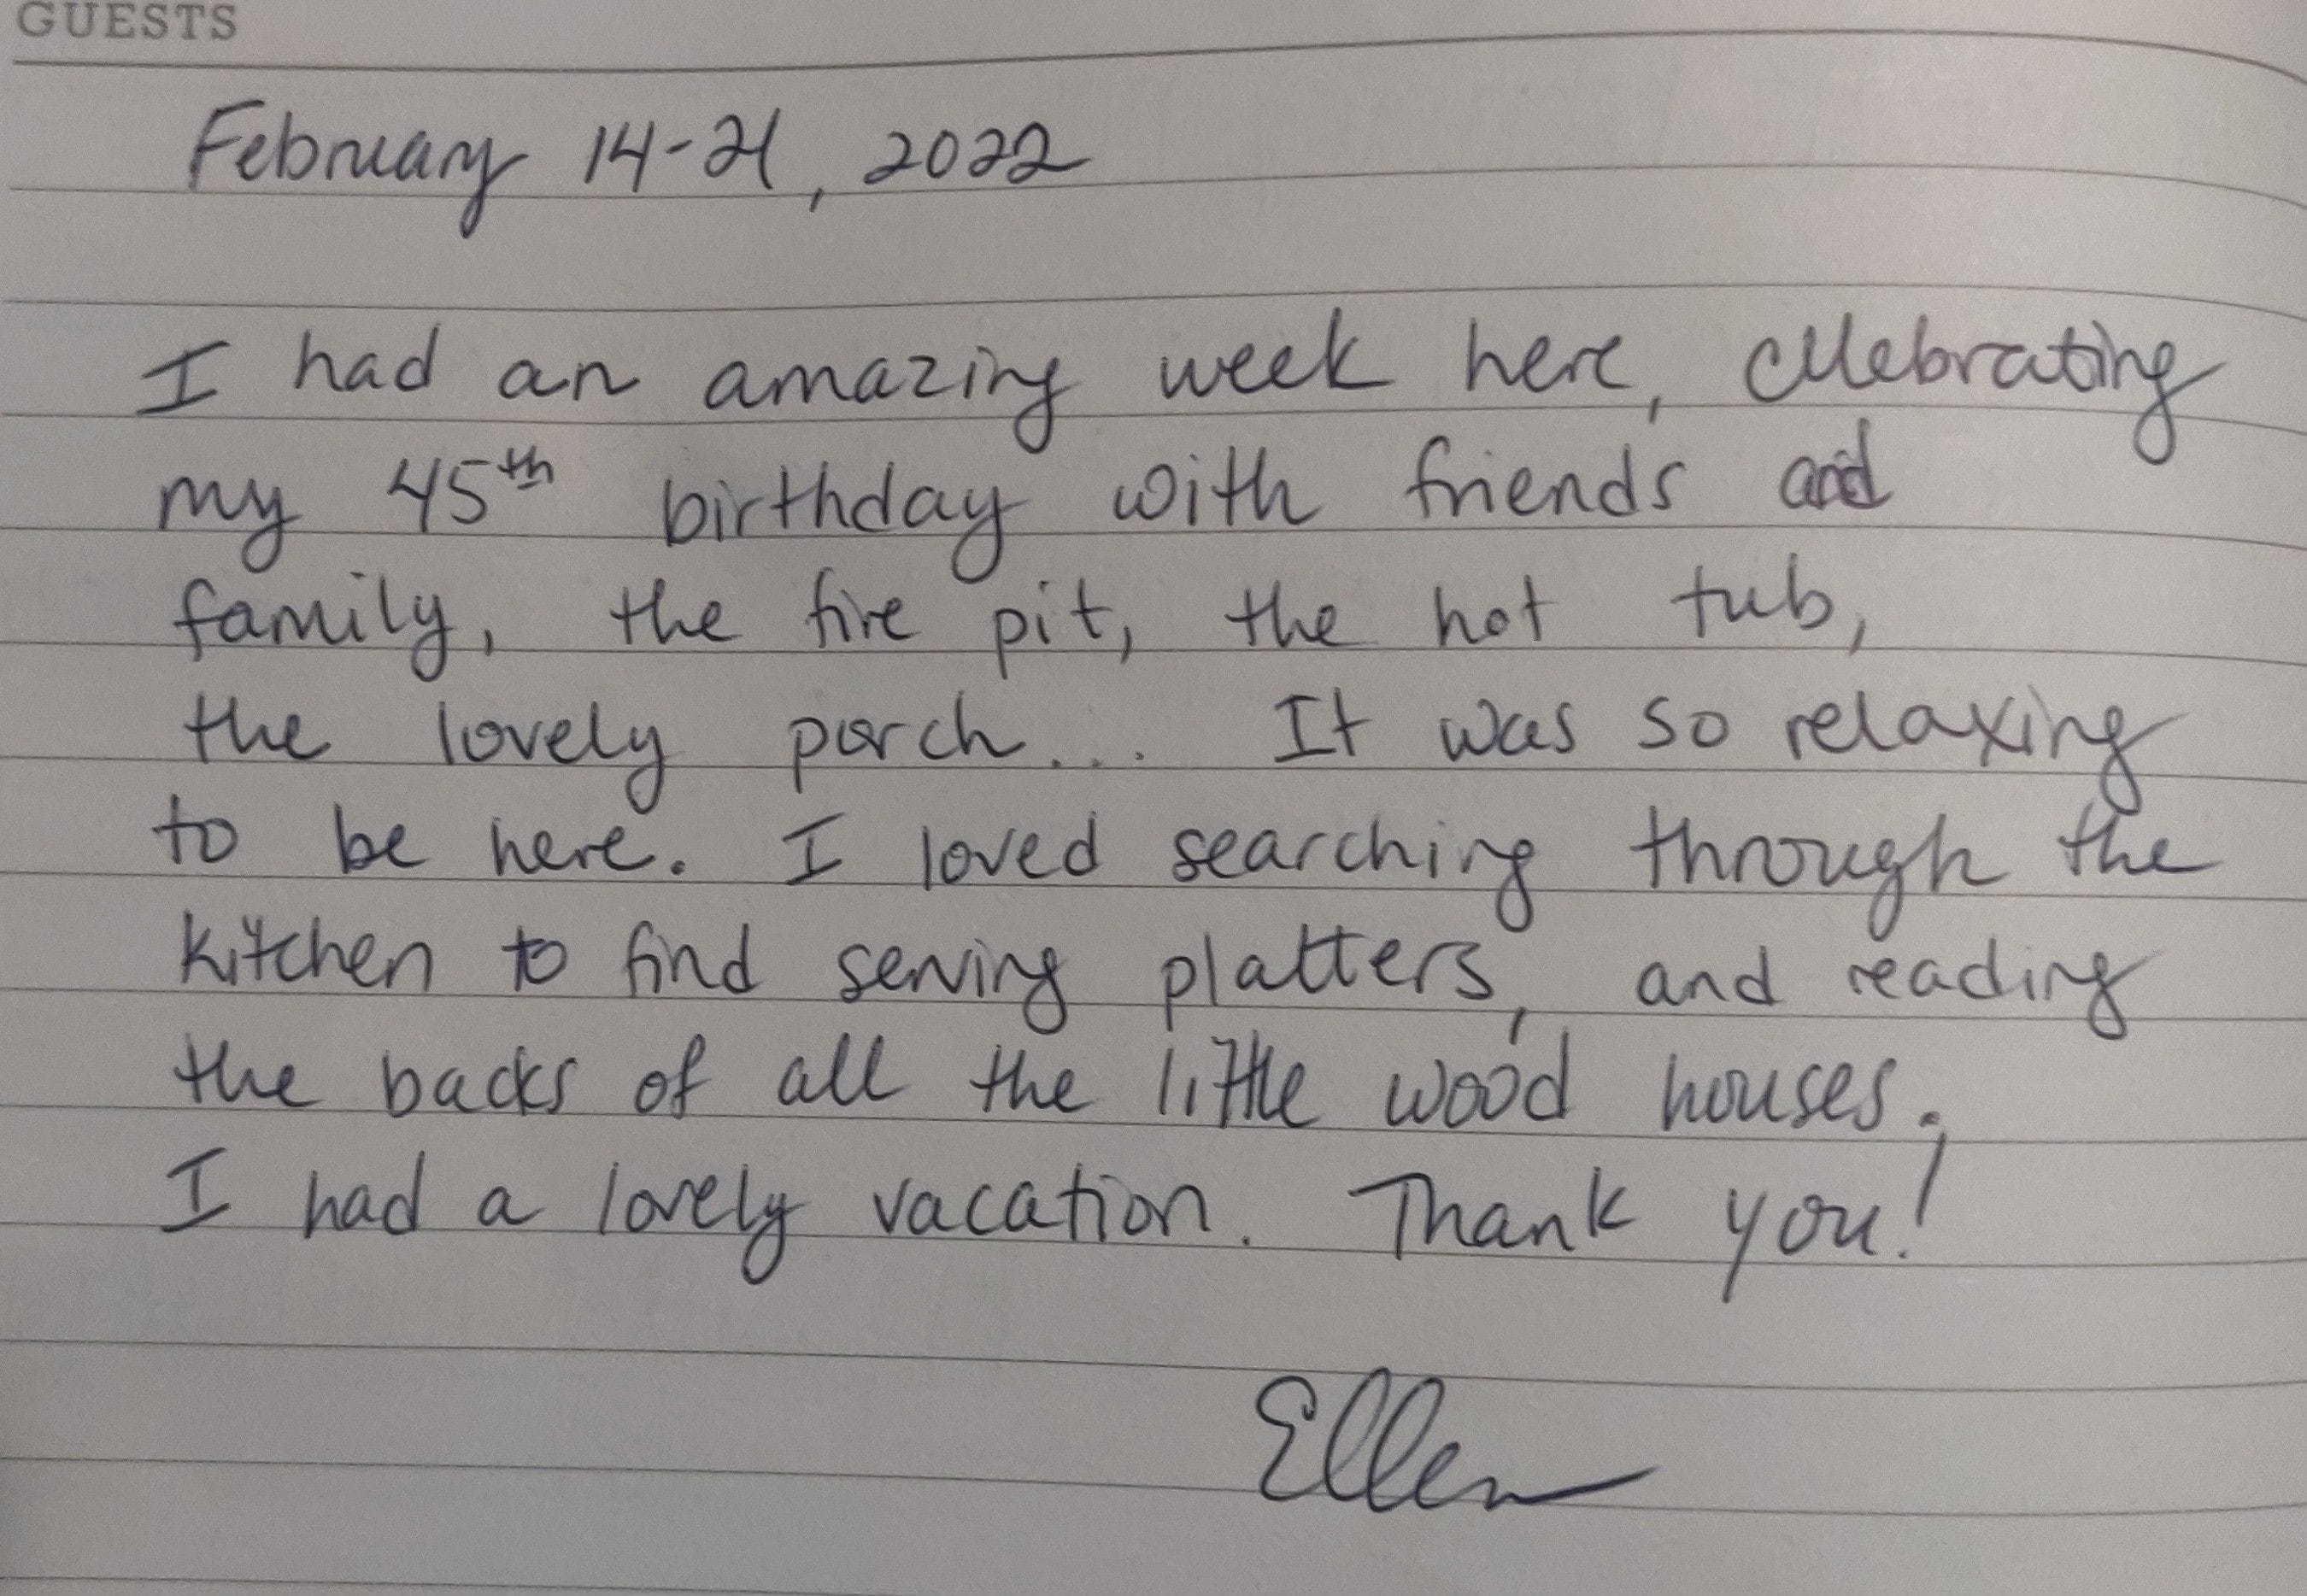 GUESTS
February 14-21, 2022
I had an amazing week here, celebrating
my 45th birthday with friends and
family, the fire pit, the hot tub,
the lovely porch... It was so relaxing
to be here. I loved searching through the
kitchen to find serving platters, and reading
the backs of all the little wood houses.
I had a lovely vacation. Thank you!
Ellen